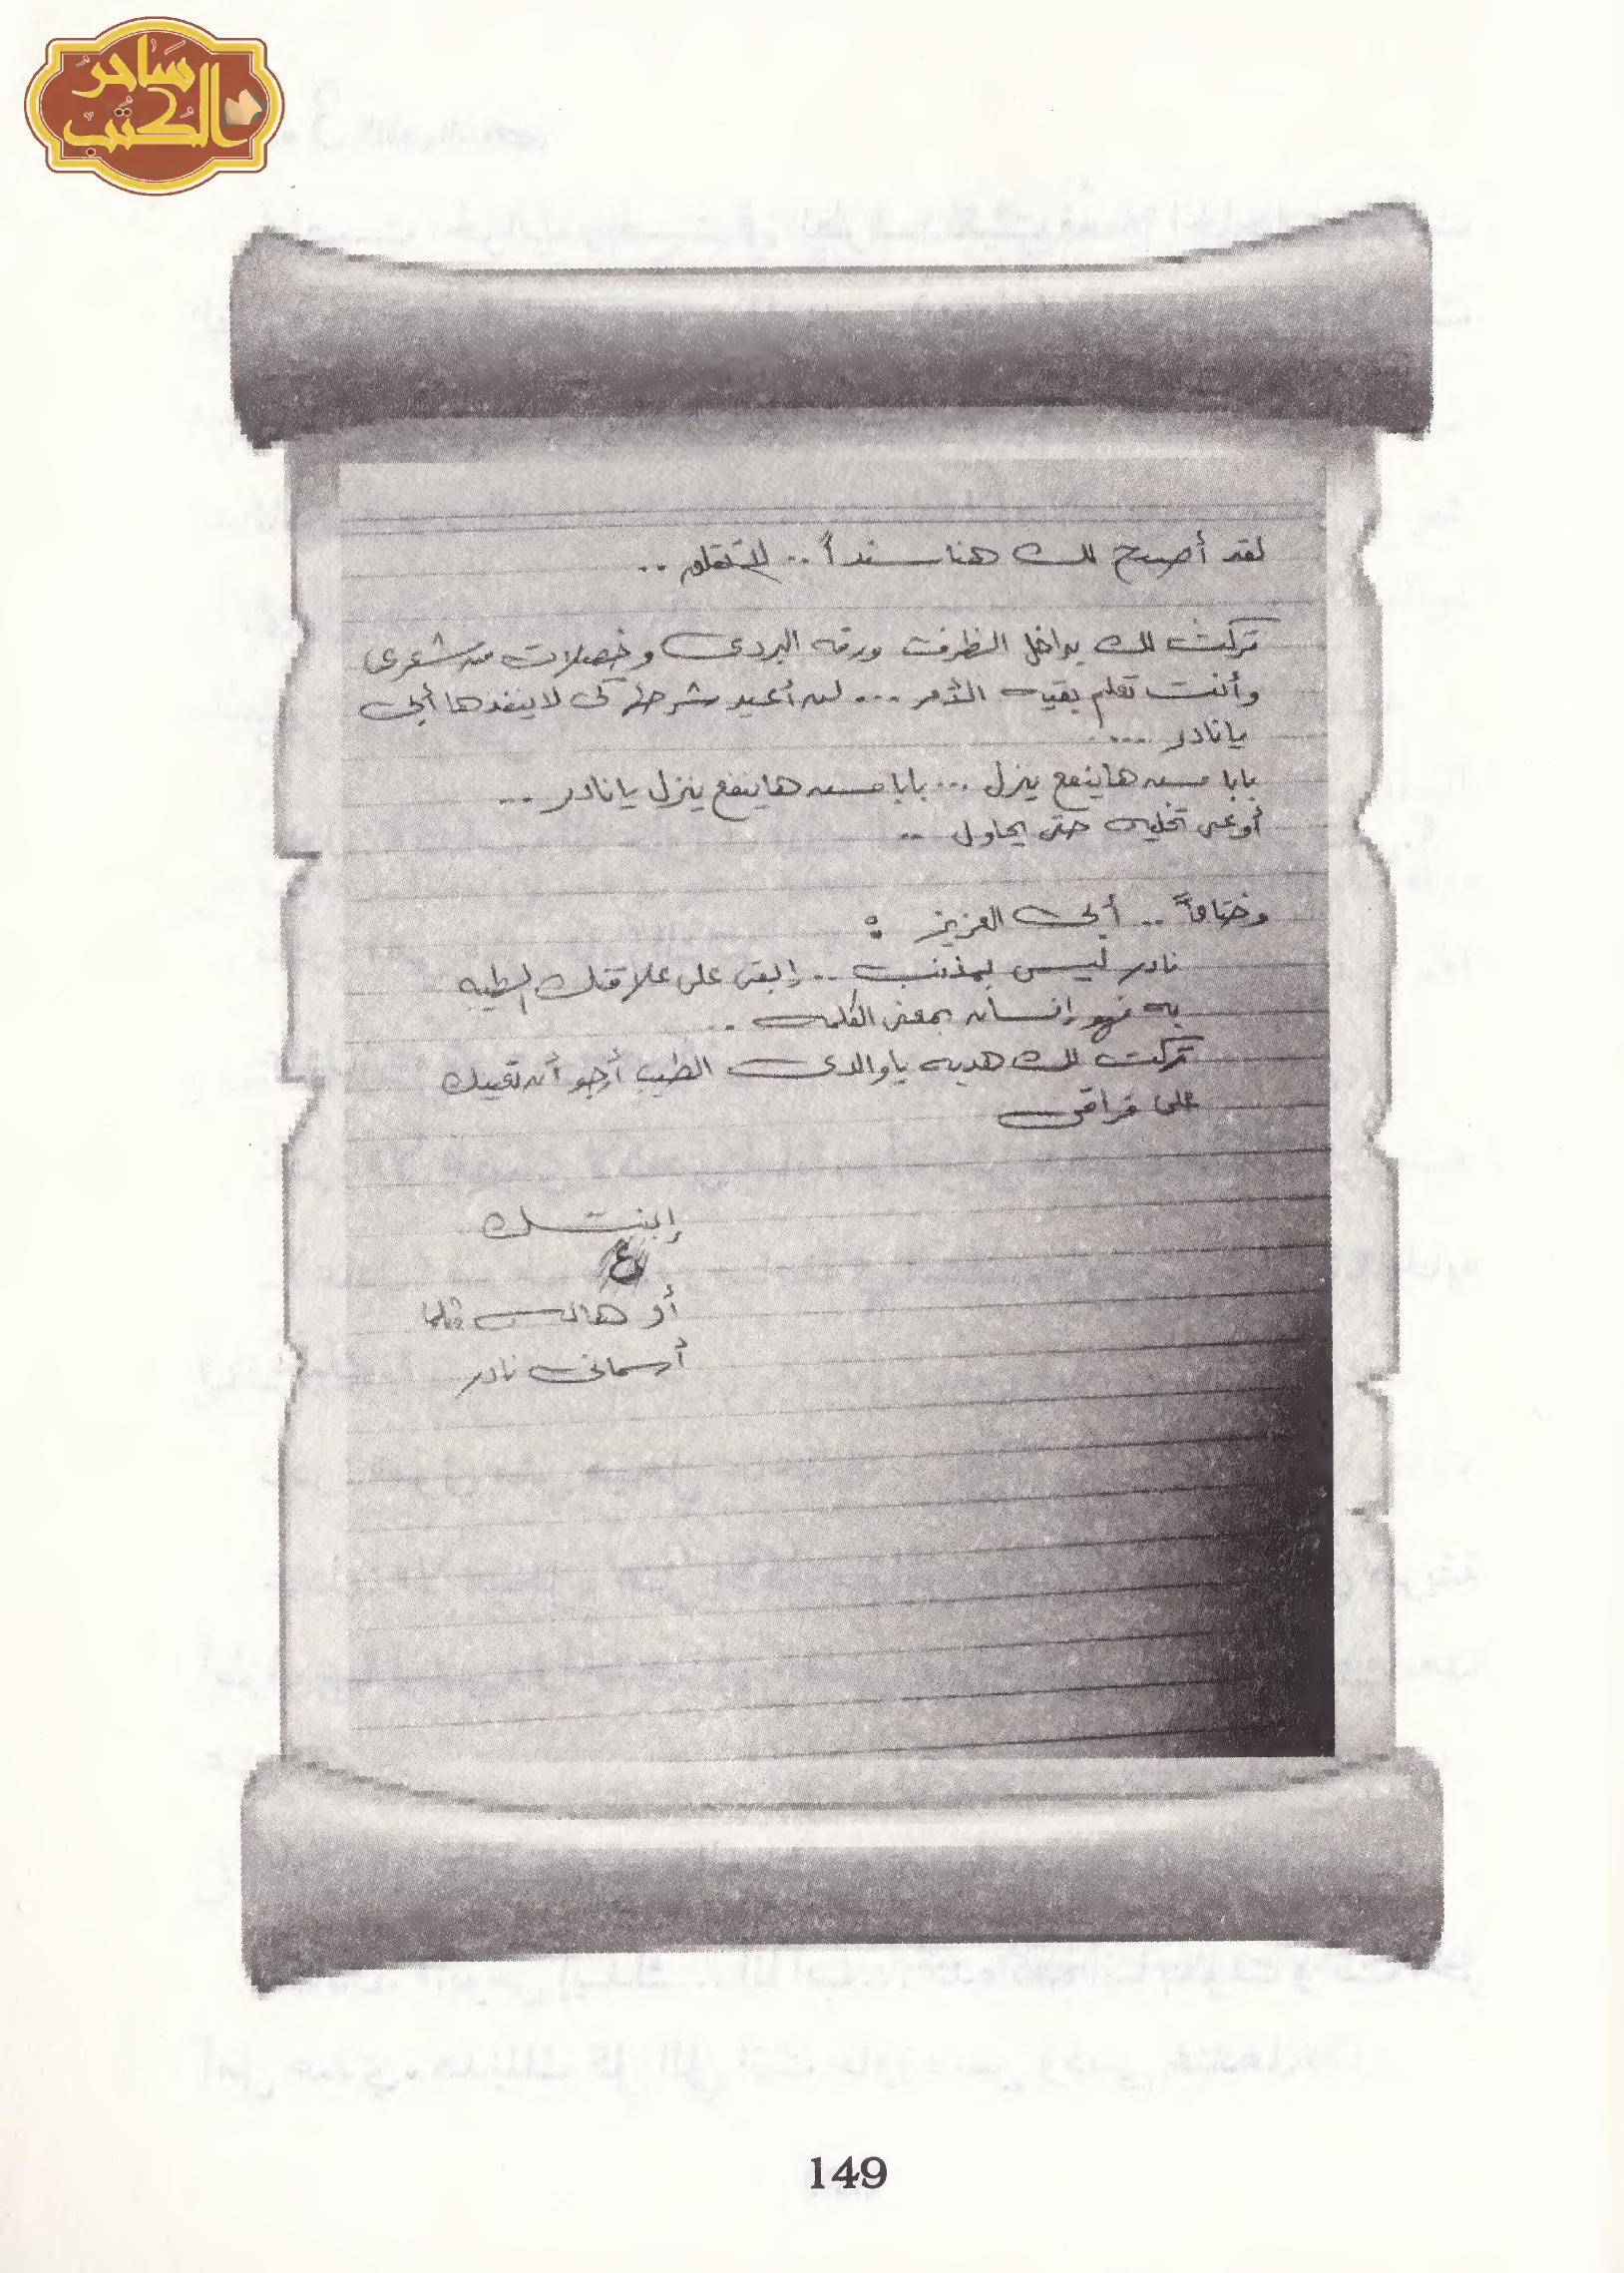 ساحر
الكتب
لقد أصبح لك هنا سنداً .. لا تقلق ..
تركت لك بداخل الظرف ورقه البردى وخصلات من شعرى
وأنت تعلم بقيه الأمر ... لن أعيد شرحها كى لا ينفذها أبى
يا نادر ...
بابا مش هاينفع ينزل ... بابا مش هاينفع ينزل يا نادر ...
أوعى تخليه حتى يحاول ..
وختاماً .. أبى العزيز :
نادر ليس بمذنب .. إبقى على علاقتك الطيبه
به فهو إنسان بمعنى الكلمه .
تركت لك هديه يا والدى الطيب أرجو أن تعينك
على فراقى
إبنتك
أو هانى كما
أسمانى نادر
149